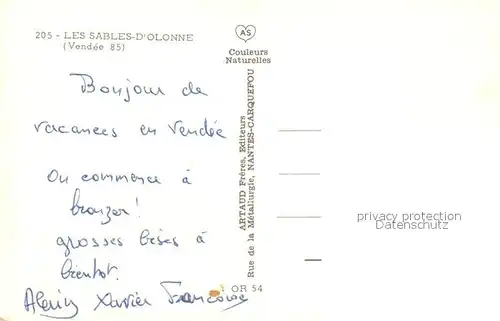 205 - LES SABLES-D'OLONNE
(Vendée 85)
AS
Couleurs
Naturelles
Bonjour de
vacances en Vendée
On commence à
bronzer!
grosses bises à
bientot.
Xavier Francoise
ARTAUD Frères, Editeurs
Rue de la Métallurgie, NANTES-CARQUEFOU
OR 54
privacy protection
Datenschutz